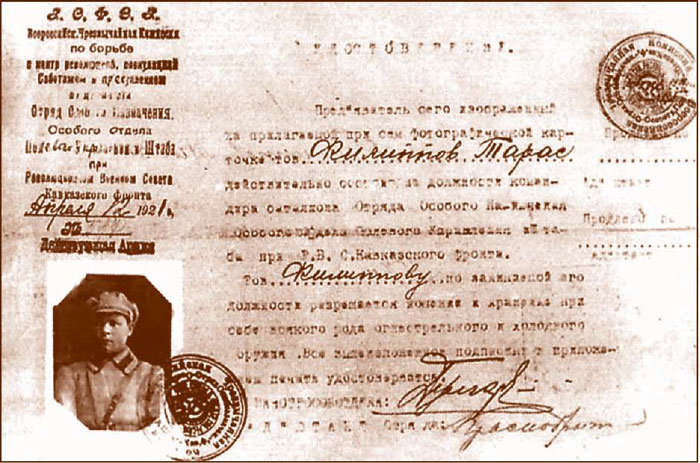 Р. С. Ф. С. Р.
Всероссийск. Чрезвычайная Комиссия
по борьбе
с контр революцией, спекуляцией
Саботажем и преступлением
Отряд Особого Назначения.
Особого отдела
Полевого Управления Штаба
при
Революцион Военном Совета
Кавказского Фронта
Апреля 12 1921 г.
№
Действующая Армия
УДОСТОВЕРЕНИЕ.
Предъявитель сего изображенный
на прилагаемой при сем фотографической кар-
точке тов. Филиппов Тарас
действительно состоит на должности коман-
дира баталиона Отряда Особого Назначения
Особого отдела Полевого Управления Шта-
ба при Р.В.С. Кавказского фронта.
Тов. Филиппову по занимаемой им
должности разрешается ношение и хранение при
себе всякого рода огнестрельного и холодного
оружия. Все вышеизложенное подписью и приложе-
нием печати удостоверяется.
Продлено